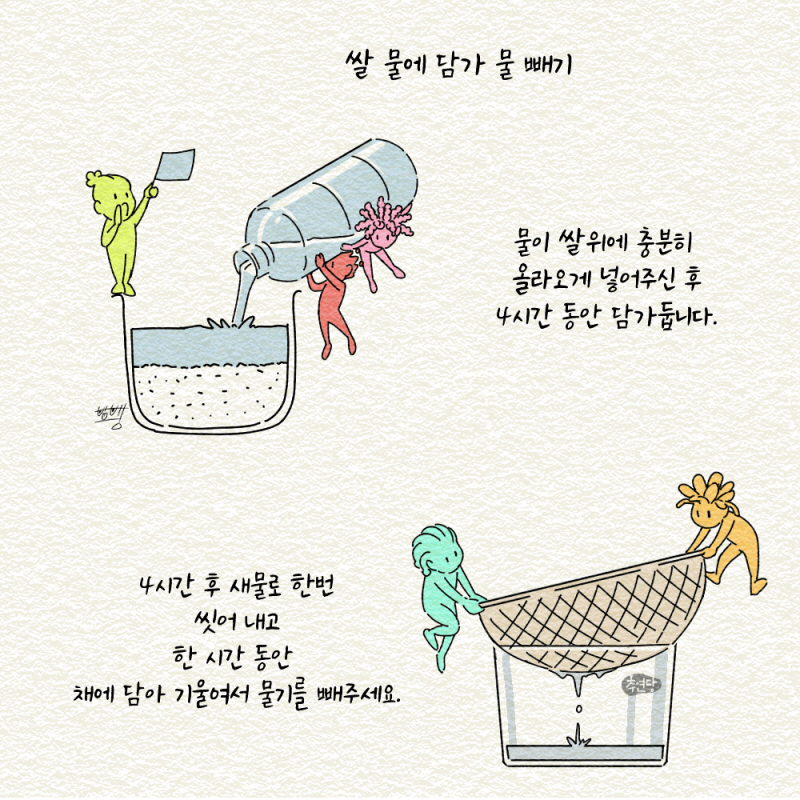 쌀 물에 담가 물 빼기
물이 쌀위에 충분히
올라오게 넣어주신 후
4시간 동안 담가둡니다.
4시간 후 새물로 한번
씻어 내고
한 시간 동안
채에 담아 기울여서 물기를 빼주세요.
추연당